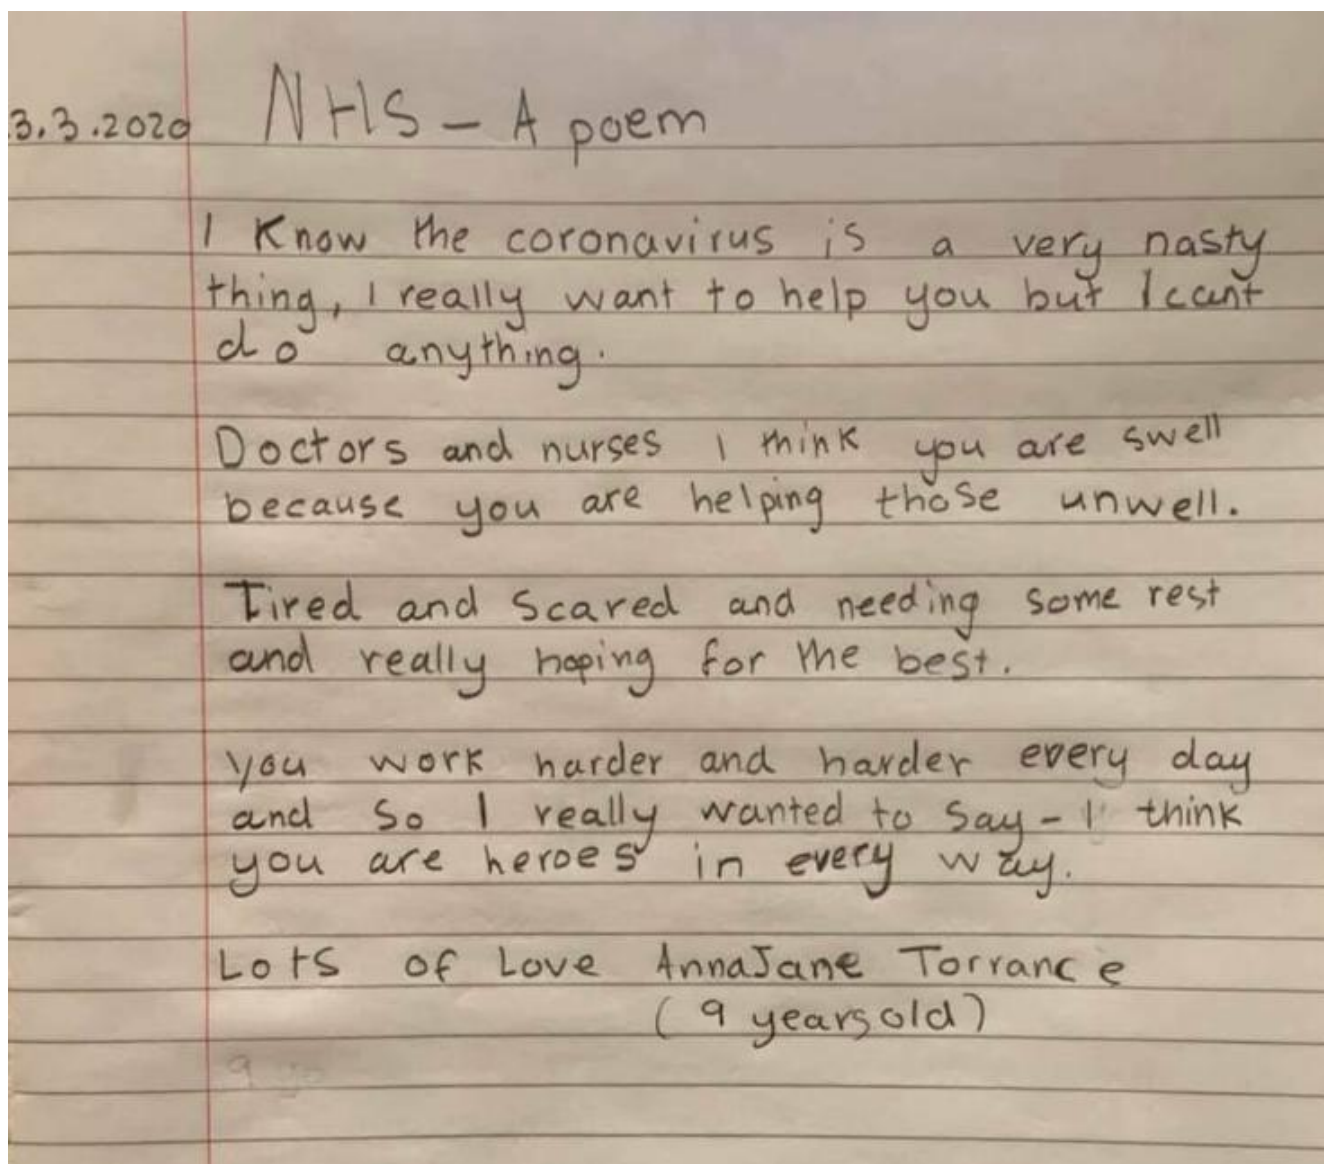 3.3.2020 NHS - A poem
I Know the coronavirus is a very nasty
thing, I really want to help you but I cant
do anything.
Doctors and nurses I think you are swell
because you are helping those unwell.
Tired and Scared and needing some rest
and really hoping for the best.
you work harder and harder every day
and so I really wanted to say - I think
you are heroes in every way.
Lots of Love AnnaJane Torrance
(9 years old)